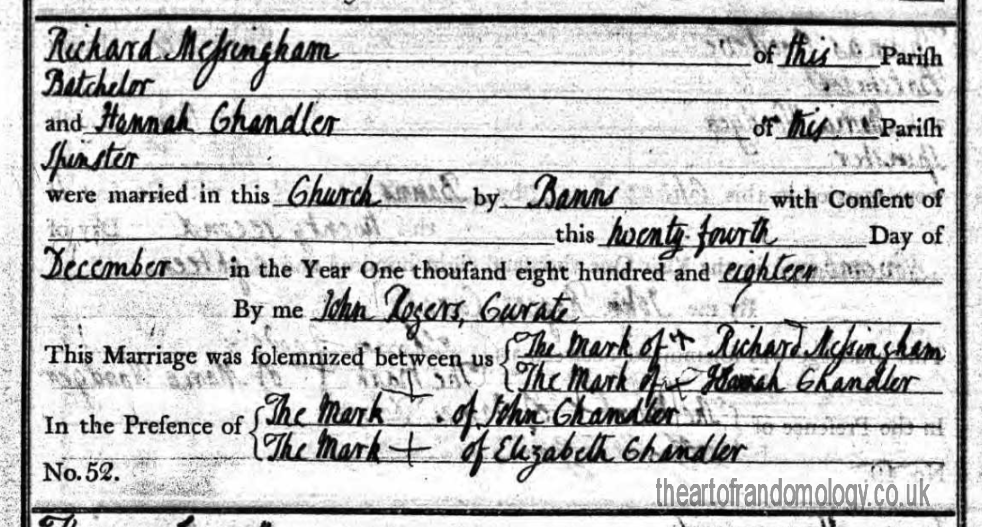 Richard Meſsingham of this Pariſh
Batchelor
and Hannah Chandler of this Pariſh
Spinster
were married in this Church by Banns with Conſent of
this twenty fourth Day of
December in the Year One thouſand eight hundred and eighteen
By me John Rogers, Curate
This Marriage was ſolemnized between us { The Mark of + Richard Meſsingham
The Mark of + Hannah Chandler
In the Preſence of { The Mark + of John Chandler
The Mark + of Elizabeth Chandler
No. 52.
theartofrandomology.co.uk